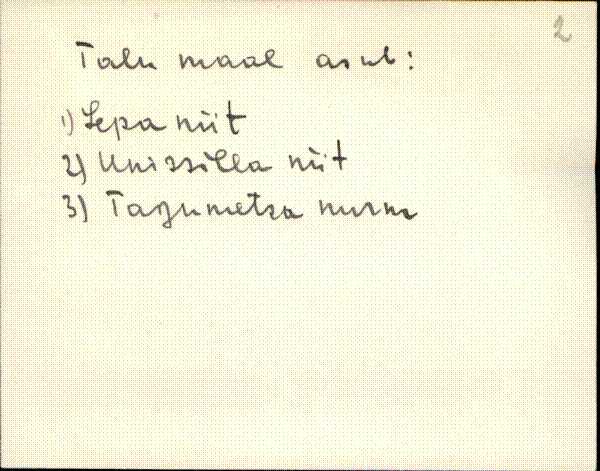 2
Talu maal asub:
1) Lepa niit
2) Unissilla niit
3) Tagumetsa nurm